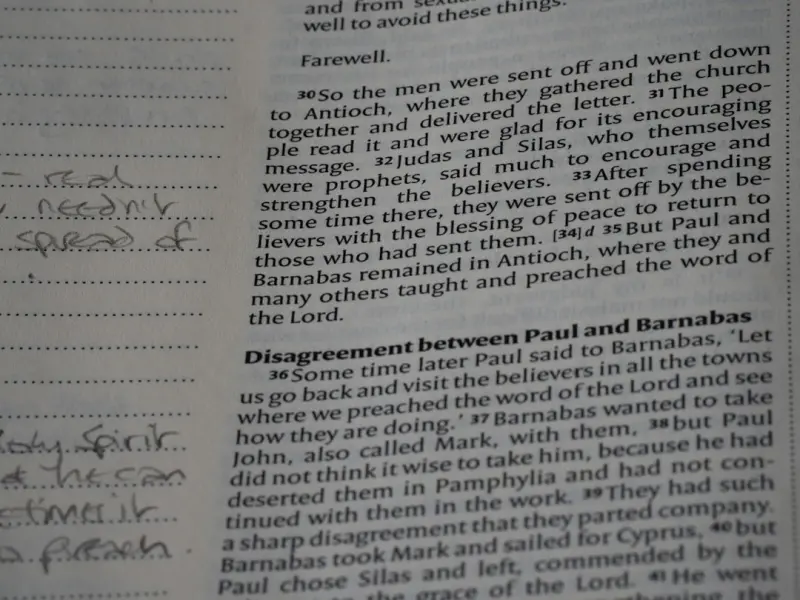 and from
well to avoid these things.
Farewell.
30 So the men were sent off and went down
to Antioch, where they gathered the church
together and delivered the letter. 31 The peo-
ple read it and were glad for its encouraging
message. 32 Judas and Silas, who themselves
were prophets, said much to encourage and
strengthen the believers. 33 After spending
some time there, they were sent off by the be-
lievers with the blessing of peace to return to
those who had sent them. [34]d 35 But Paul and
Barnabas remained in Antioch, where they and
many others taught and preached the word of
the Lord.
Disagreement between Paul and Barnabas
36 Some time later Paul said to Barnabas, ‘Let
us go back and visit the believers in all the towns
where we preached the word of the Lord and see
how they are doing.’ 37 Barnabas wanted to take
John, also called Mark, with them, 38 but Paul
did not think it wise to take him, because he had
deserted them in Pamphylia and had not con-
tinued with them in the work. 39 They had such
a sharp disagreement that they parted company.
Barnabas took Mark and sailed for Cyprus, 40 but
Paul chose Silas and left, commended by the
grace of the Lord. 41 He went
the
- real
needn't
spread of
Spirit
he can
preach.